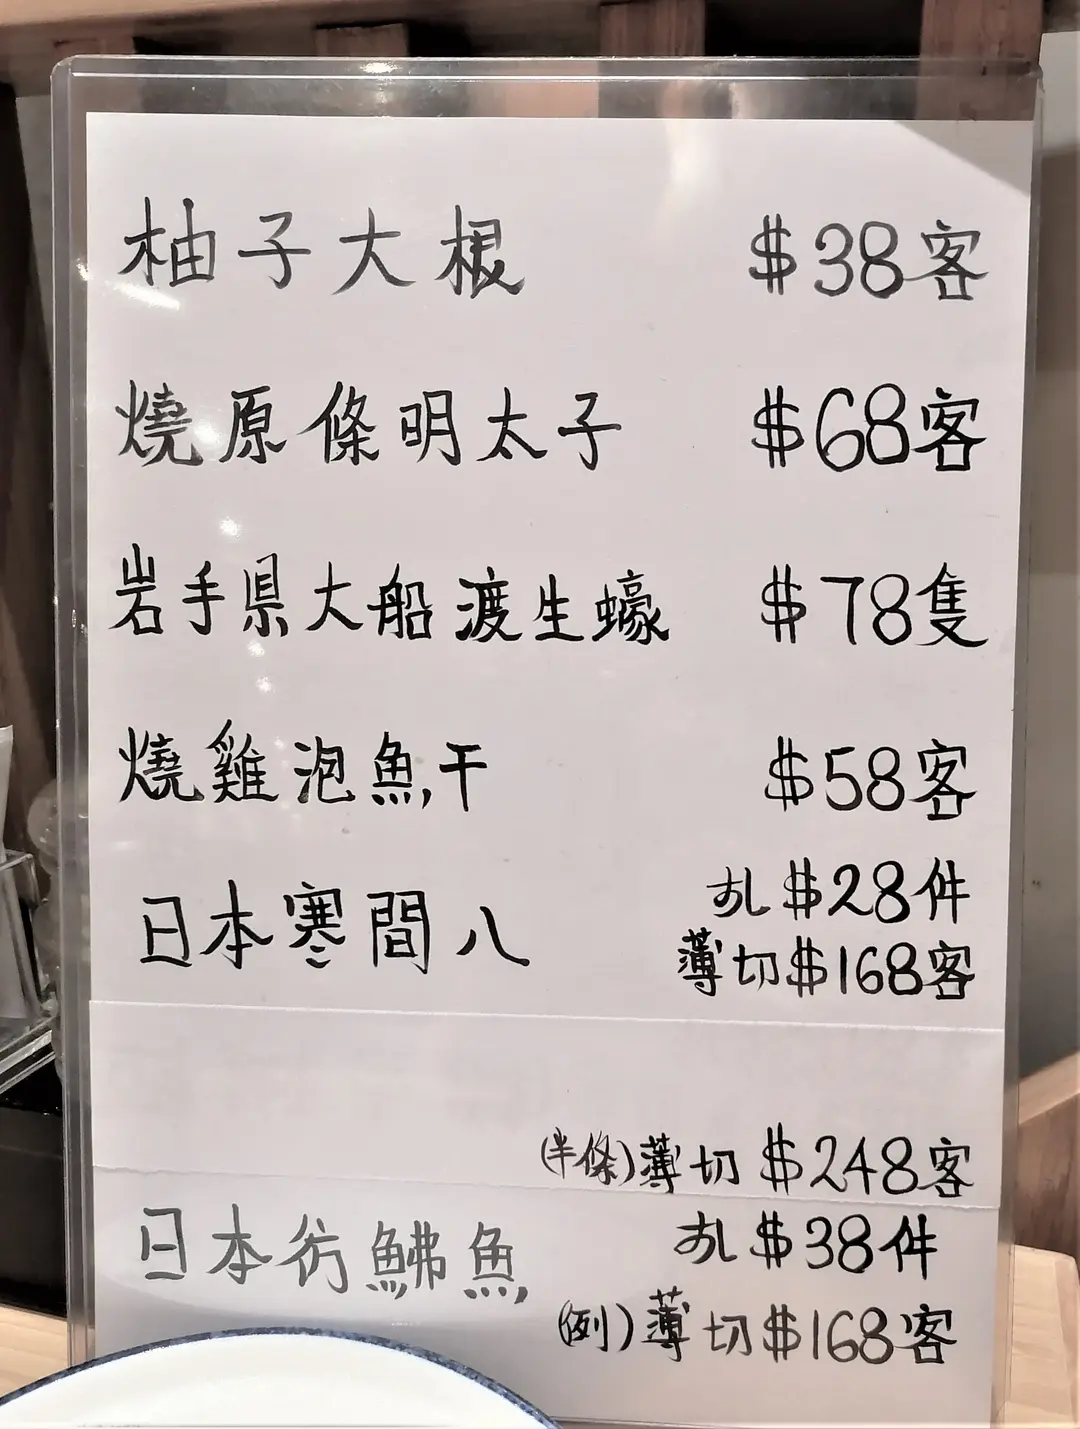 柚子大根 $38客
燒原條明太子 $68客
岩手県大船渡生蠔 $78隻
燒雞泡魚干 $58客
日本寒間八 刺 $28件
薄切 $168客
(半條)薄切 $248客
日本魴鮄魚 刺 $38件
(例)薄切 $168客